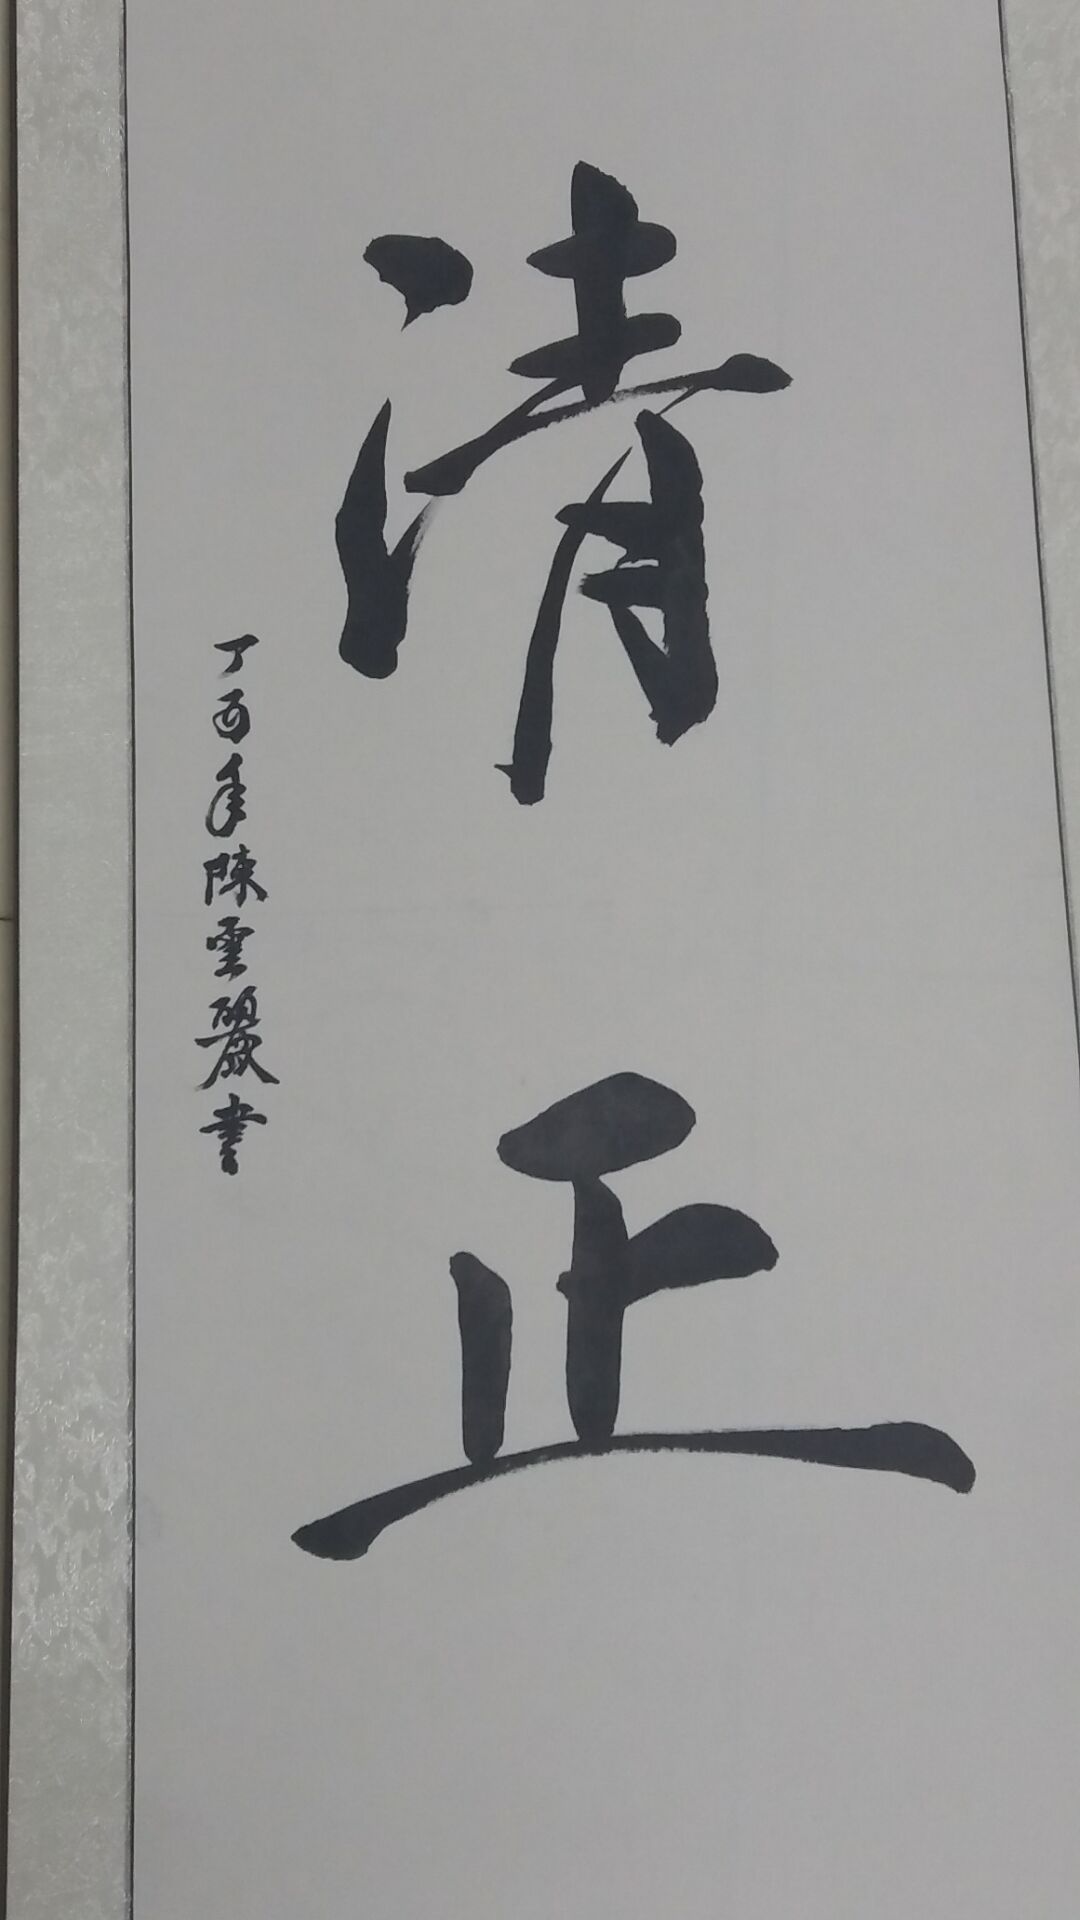 清正
丁酉年陳雲麗書